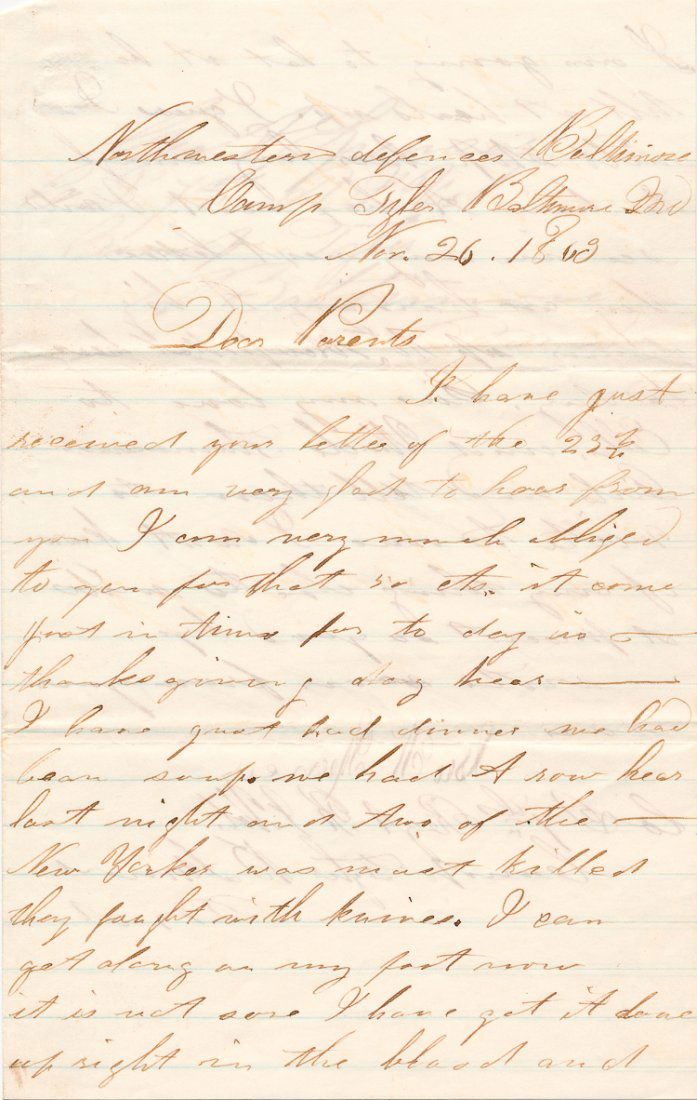 Northwestern defences Baltimore
Camp Tyler Baltimore Md
Nov. 26. 1863
Dear Parents
I have just
received your letter of the 23
and am very glad to hear from
you I am very much obliged
to you for that 50 cts. it come
just in time for to day is
thanksgiving day hear
I have just had dinner we had
bean soup. we had A row hear
last night and two of the
New Yorkes was most killed
they fought with knives. I can
get along on my foot now
it is not sore I have got it done
up right in the blood and